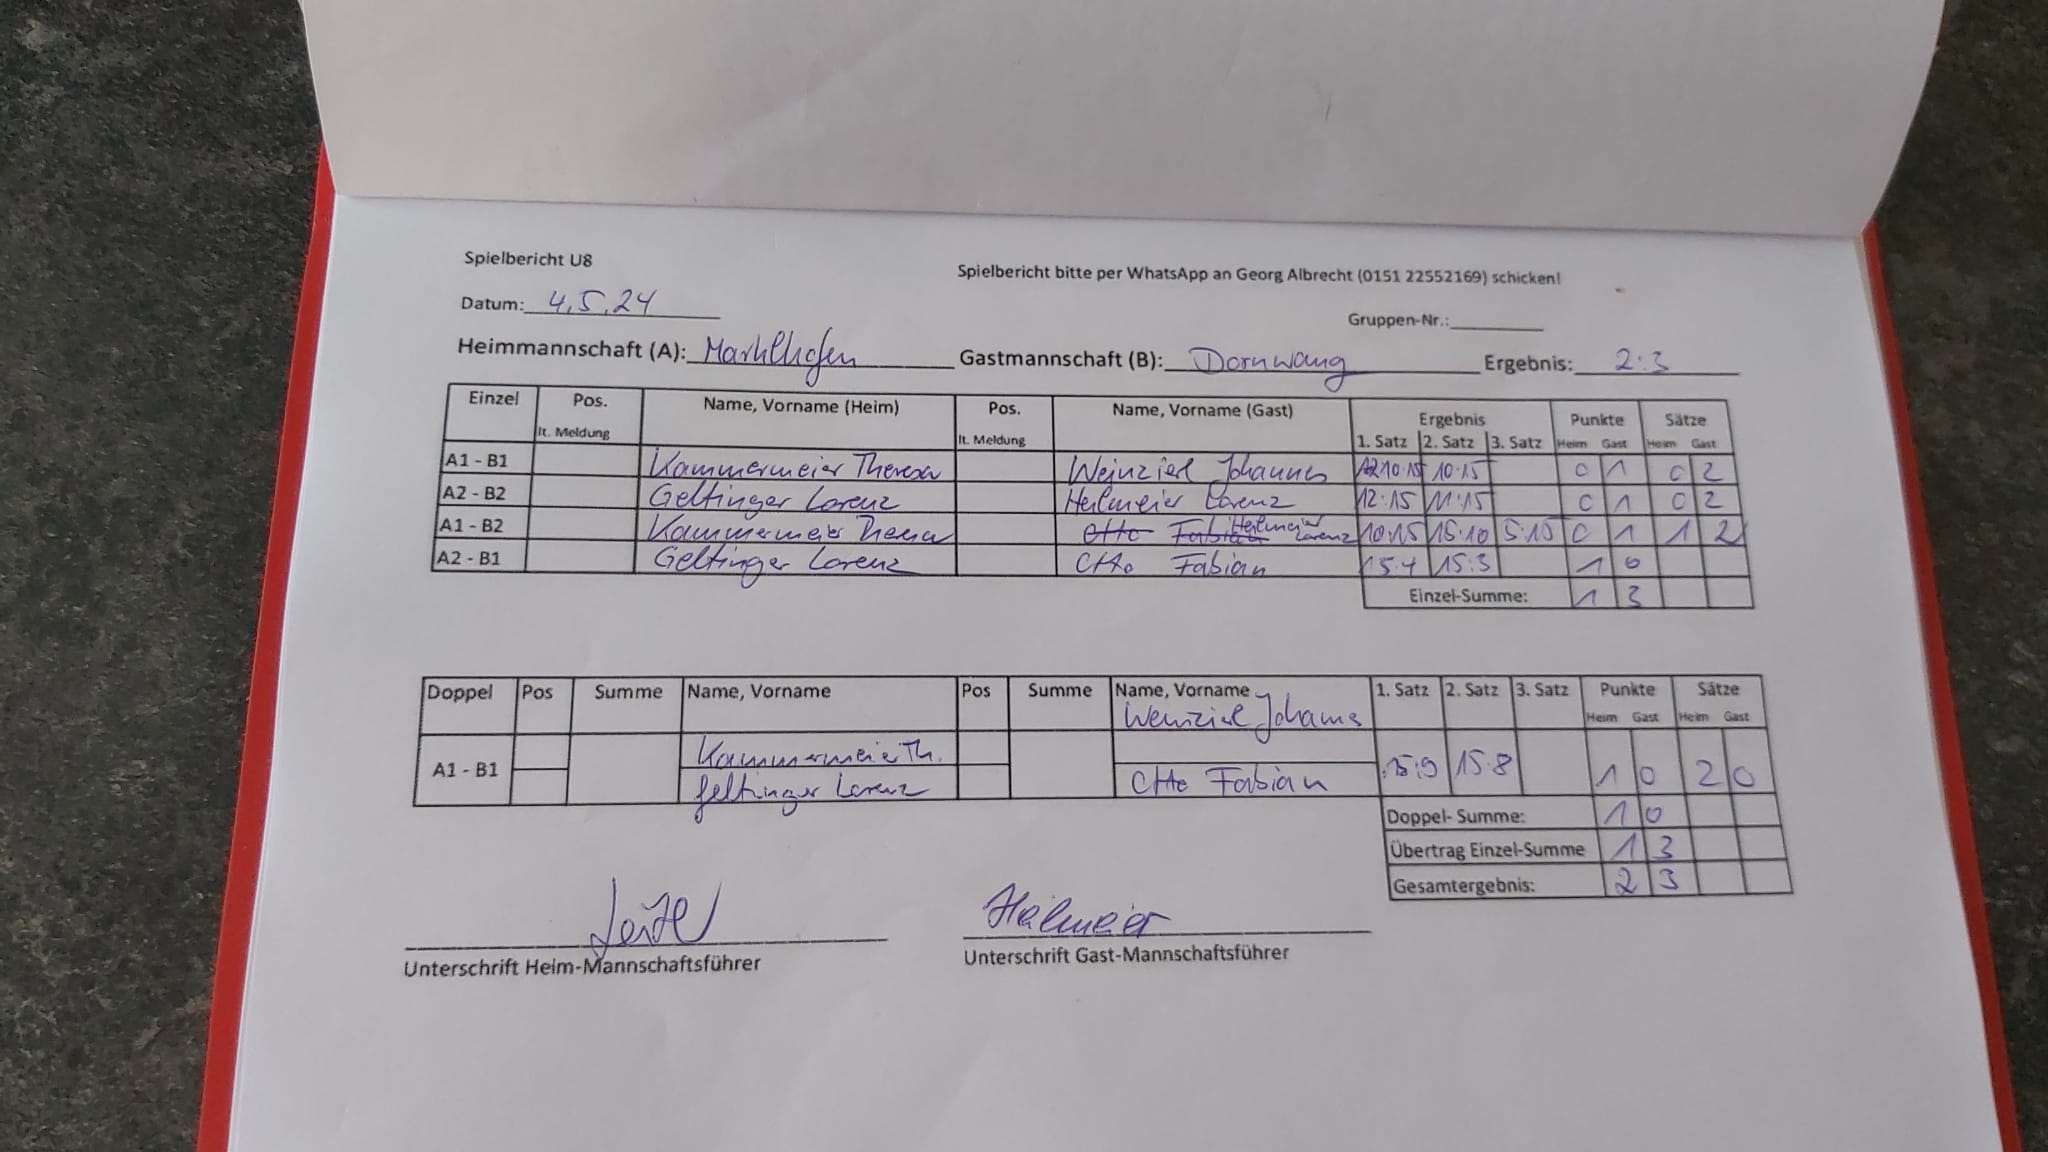 Spielbericht U8
Spielbericht bitte per WhatsApp an Georg Albrecht (0151 22552169) schicken!
Datum: 4.5.24
Gruppen-Nr.:
Heimmannschaft (A): Marklhofen Gastmannschaft (B): Dornwang Ergebnis: 2:3
Einzel Pos. lt. Meldung Name, Vorname (Heim) Pos. lt. Meldung Name, Vorname (Gast) Ergebnis Punkte Sätze
1. Satz 2. Satz 3. Satz Heim Gast Heim Gast
A1 - B1 Kammermeier Theresa Weinzierl Johannes 10:15 10:15 0 1 0 2
A2 - B2 Geltinger Lorenz Heilmeier Lorenz 12:15 11:15 0 1 0 2
A1 - B2 Kammermeier Theresa Otto Fabian Heilmeier Lorenz 10:15 15:10 5:15 0 1 1 2
A2 - B1 Geltinger Lorenz Otto Fabian 15:4 15:3 1 0
Einzel-Summe: 1 3
Doppel Pos Summe Name, Vorname Pos Summe Name, Vorname 1. Satz 2. Satz 3. Satz Punkte Sätze
Heim Gast Heim Gast
Weinzierl Johannes
A1 - B1 Kammermeier Th. 15:9 15:8 1 0 2 0
Geltinger Lorenz Otto Fabian
Doppel- Summe: 1 0
Übertrag Einzel-Summe 1 3
Gesamtergebnis: 2 3
Heilmeier
Unterschrift Heim-Mannschaftsführer Unterschrift Gast-Mannschaftsführer